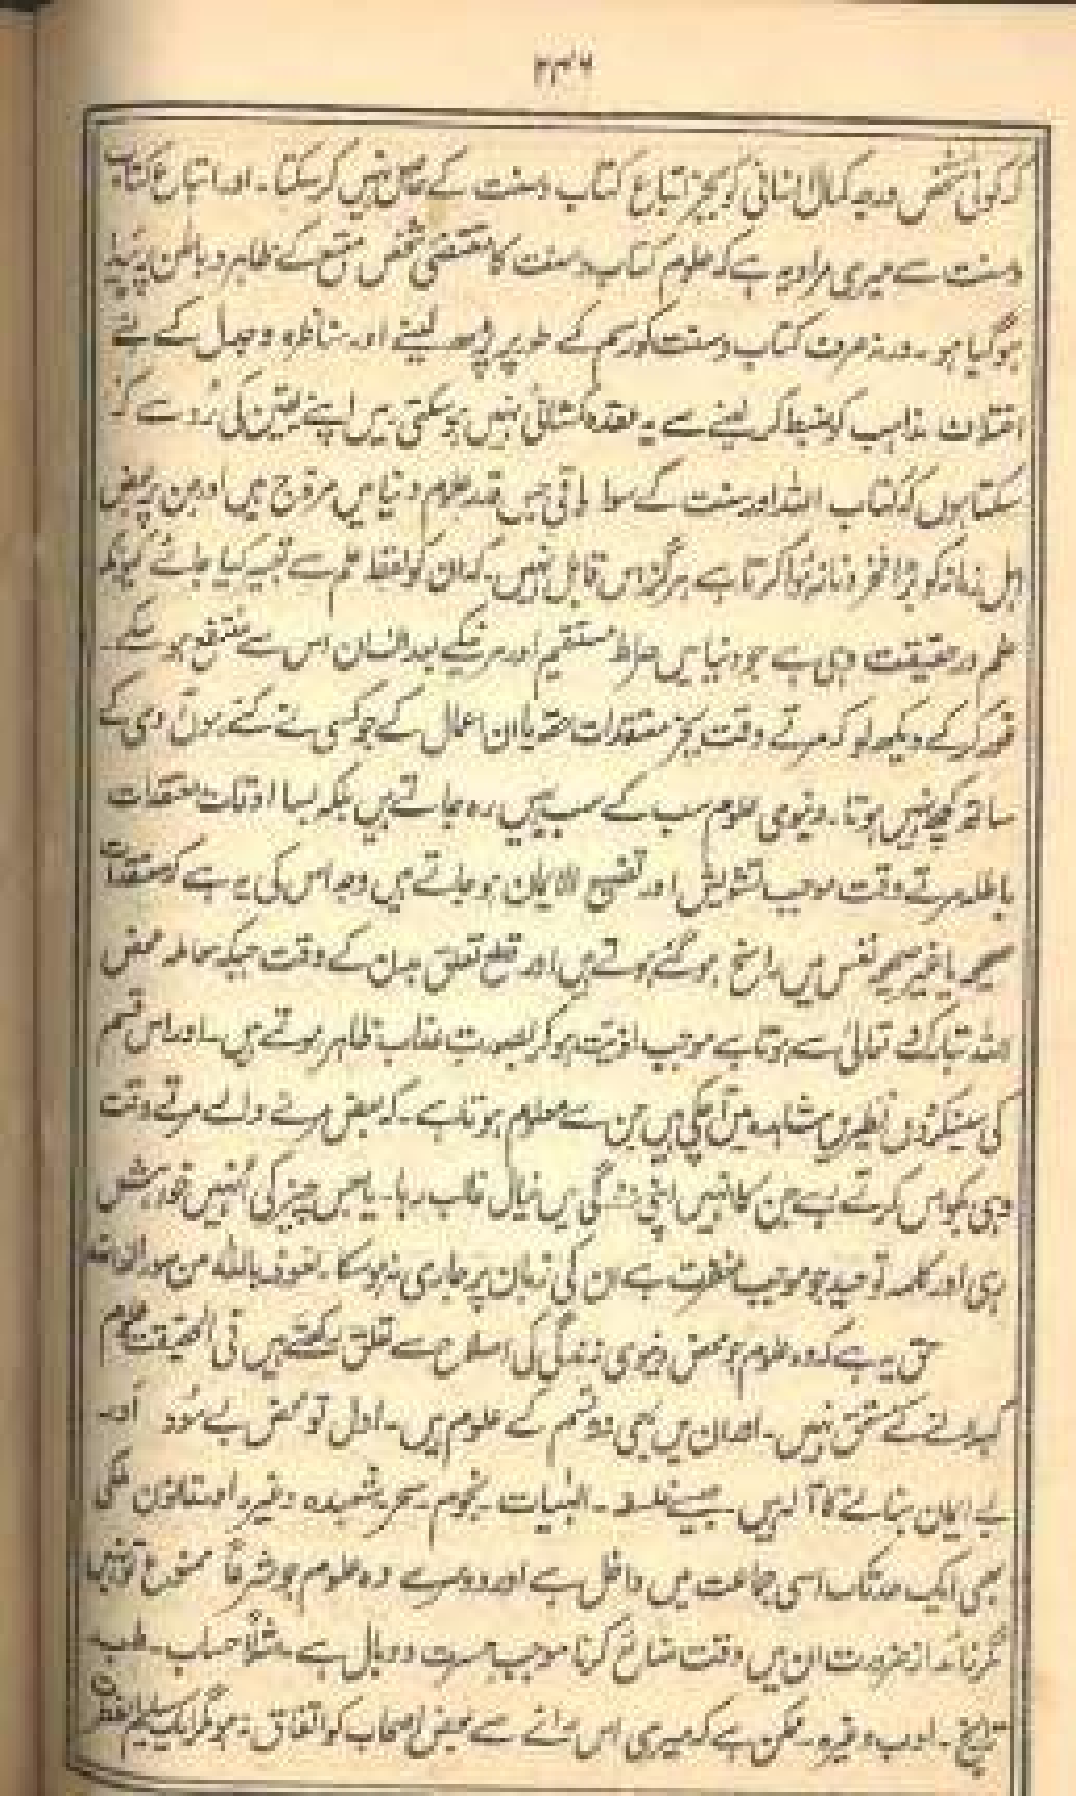 ۲۳۶
کہ کوئی شخص درجہ کمال انسانی کو بجز اتباع کتاب وسنت کے حاصل نہیں کرسکتا۔ اور اتباع کتاب
وسنت سے میری مراد یہ ہے کہ علوم کتاب وسنت کا مقتضی شخص متبع کے ظاہر و باطن پر پیدا
ہوگیا ہو۔ ورنہ صرف کتاب وسنت کو رسم کے طور پر پڑھ لینے اور مناظرہ و جدل کے لئے
اختلاف مذاہب کو ضبط کرلینے سے یہ عقدہ کشائی نہیں ہوسکتی میں اپنے یقین کی رُو سے کہہ
سکتا ہوں کہ کتاب اللہ اور سنت کے سوا باقی جس قدر علوم دنیا میں مروّج ہیں اور جن پر بعض
اہل زمانہ کو بڑا فخر و ناز ہُوا کرتا ہے ہرگز اس قابل نہیں۔ کہ ان کو لفظ علم سے تعبیر کیا جائے کیونکہ
علم درحقیقت وہی ہے جو دنیا میں صراط مستقیم اور مرنیکے بعد انسان اس سے منتفع ہو سکے۔
غور کرکے دیکھ لو کہ مرتے وقت بجز معتقدات حقہ یا ان اعمال کے جو کسی نے کئے ہوں آدمی کے
ساتھ کچھ نہیں ہوتا۔ دنیوی علوم سب کے سب یہیں رہ جاتے ہیں بلکہ بسا اوقات معتقدات
باطلہ مرتے وقت موجب تشویش اور تضییع الایمان ہو جاتے ہیں وجہ اس کی یہ ہے کہ معتقدات
صحیحہ یا غیر صحیحہ نفس میں راسخ ہوگئے ہوتے ہیں اور قطع تعلق بدن کے وقت جبکہ معاملہ محض
اللہ تبارک و تعالیٰ سے ہوتا ہے موجب اذیت ہوکر بصورت عذاب ظاہر ہوتے ہیں۔ اور اس قسم
کی سینکڑوں نظیریں مشاہدہ میں آچکی ہیں جن سے معلوم ہوتا ہے۔ کہ بعض مرنے والے مرتے وقت
وہی بکواس کرتے رہے جن کا انہیں اپنی زندگی میں خیال غالب رہا۔ یا جس چیز کی اُنہیں خواہش
رہی اور کلمہ توحید جو موجب مغفرت ہے ان کی زبان پر جاری نہ ہوسکا۔ نعوذ باللہ من سوء الخاتمہ
حق یہ ہے کہ وہ علوم جو محض دنیوی زندگی کی اصلاح سے تعلق رکھتے ہیں فی الحقیقت علوم
کہلانے کے مستحق نہیں۔ اور ان میں بھی دو قسم کے علوم ہیں۔ اول تو محض بے سُود اور
بے ایمان بنانے کا آلہ ہیں۔ جیسے فلسفہ۔ الہٰیات۔ نجوم۔ سحر۔ شعبدہ وغیرہ اور قانون ملکی
بھی ایک حد تک اسی جماعت میں داخل ہے اور دوسرے وہ علوم جو شرعاً ممنوع تو نہیں
مگر زائد از ضرورت ان میں وقت ضائع کرنا موجب حسرت و وبال ہے۔ مثلاً حساب۔ طب۔
تاریخ۔ ادب وغیرہ۔ ممکن ہے کہ میری اس رائے سے بعض اصحاب کو اتفاق نہ ہو مگر ایک سلیم الفطر